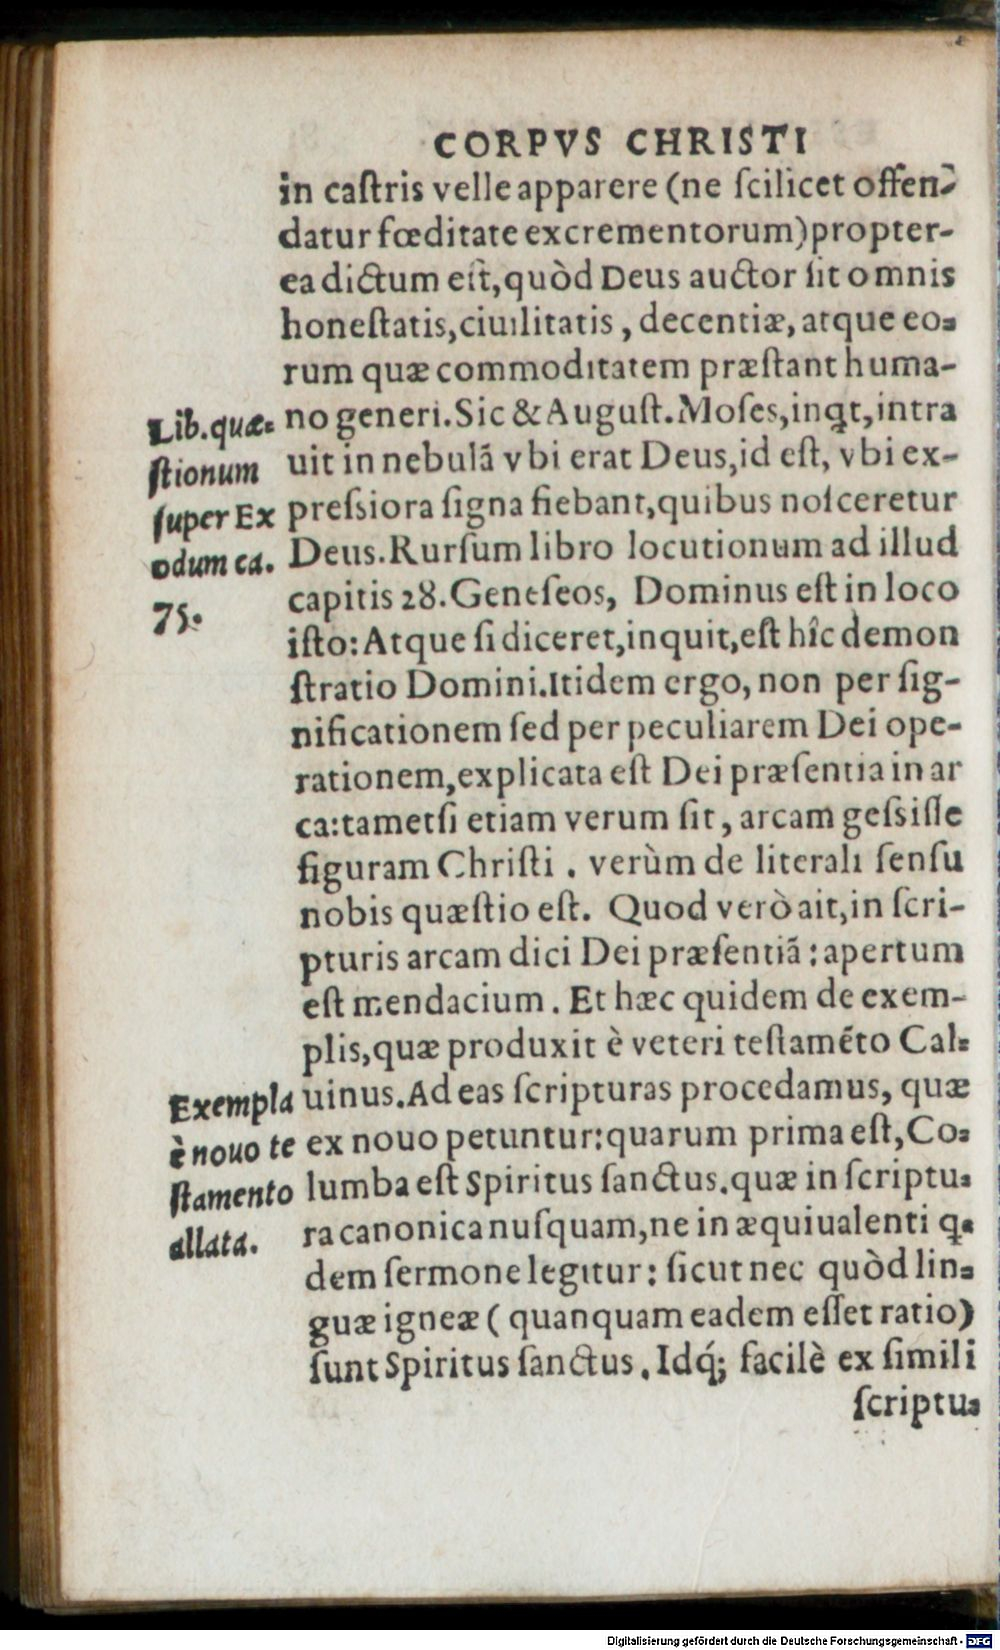 CORPVS CHRISTI
in caſtris velle apparere (ne ſcilicet offen-
datur fœditate excrementorum) propter-
ea dictum eſt, quòd Deus auctor ſit omnis
honeſtatis, ciuilitatis, decentiæ, atque eo-
rum quæ commoditatem præſtant huma-
no generi. Sic & Auguſt. Moſes, inqt, intra
uit in nebulã vbi erat Deus, id eſt, vbi ex-
preſsiora ſigna fiebant, quibus noſceretur
Deus. Rurſum libro locutionum ad illud
capitis 28. Geneſeos, Dominus eſt in loco
iſto: Atque ſi diceret, inquit, eſt hîc demon
ſtratio Domini. Itidem ergo, non per ſig-
nificationem ſed per peculiarem Dei ope-
rationem, explicata eſt Dei præſentia in ar
ca: tametſi etiam verum ſit, arcam geſsiſſe
figuram Chriſti. verùm de literali ſenſu
nobis quæſtio eſt. Quod verò ait, in ſcri-
pturis arcam dici Dei præſentiã: apertum
eſt mendacium. Et hæc quidem de exem-
plis, quæ produxit è veteri teſtamẽto Cal-
uinus. Ad eas ſcripturas procedamus, quæ
ex nouo petuntur: quarum prima eſt, Co-
lumba eſt Spiritus ſanctus. quæ in ſcriptu-
ra canonica nuſquam, ne in æquiualenti q-
dem ſermone legitur: ſicut nec quòd lin-
guæ igneæ (quanquam eadem eſſet ratio)
ſunt Spiritus ſanctus. Idq́; facilè ex ſimili
ſcriptu-
Lib. quæ-
ſtionum
ſuper Ex
odum ca.
75.
Exempla
è nouo te
ſtamento
allata.
Digitalisierung gefördert durch die Deutsche Forschungsgemeinschaft - DFG